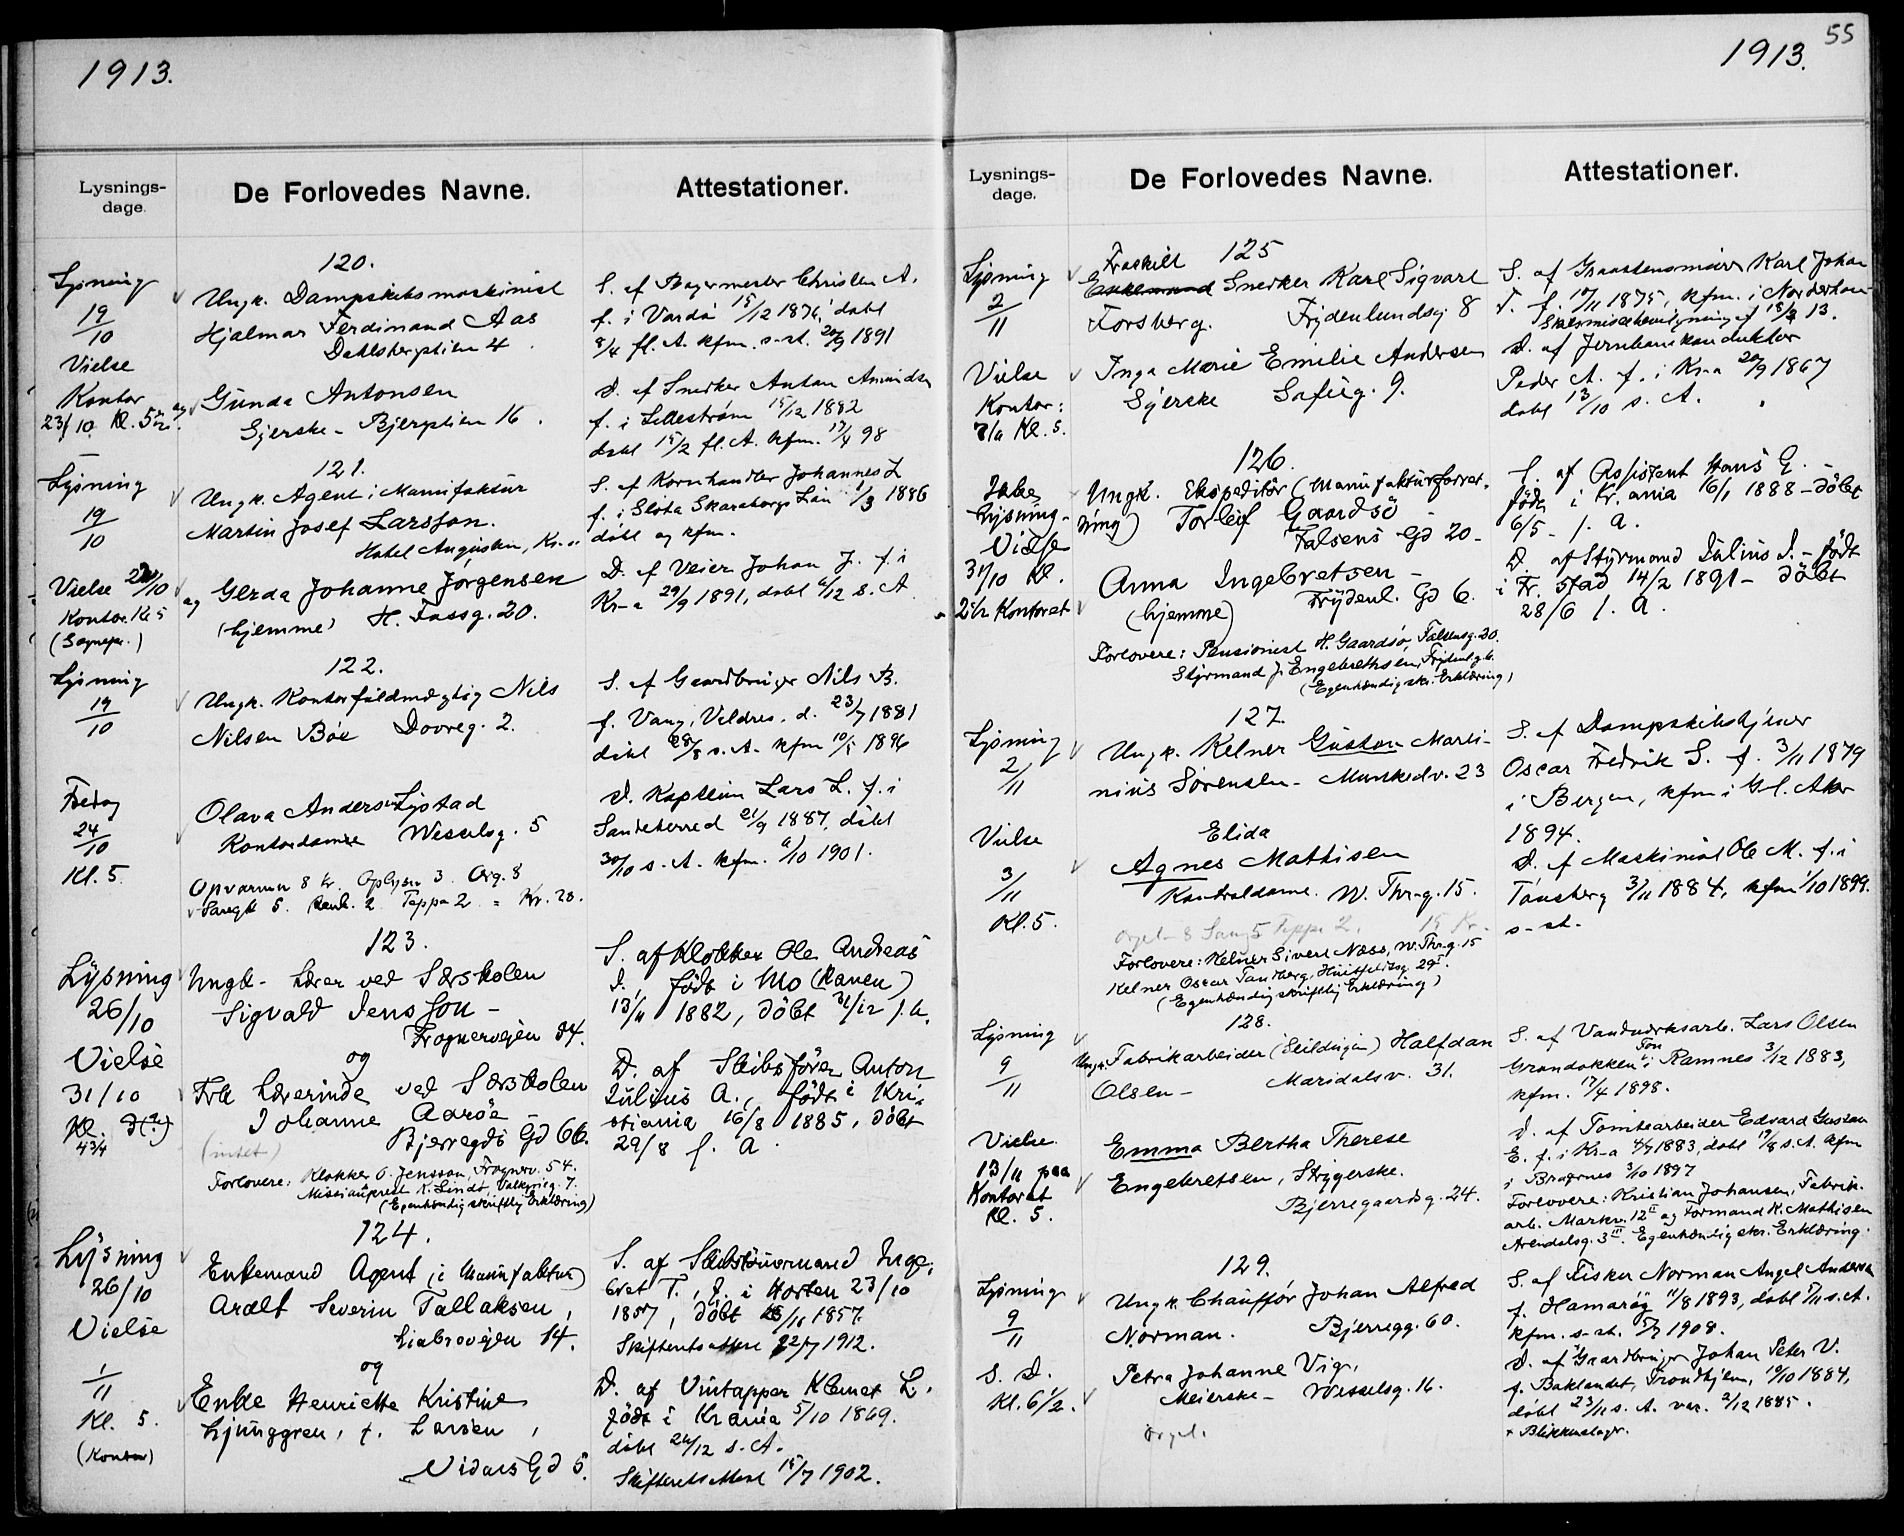 1913.
Lysnings-
dage.
De Forlovedes Navne.
Attestationer.
120.
Lysning
19/10
Vielse
Kontor
23/10 Kl. 5½
Ungk. Dampskibsmaskinist
Hjalmar Ferdinand Aas
Dahlsbergstien 4
og
Gunda Antonsen
Syerske - Bjergstien 16.
S. af Bagermester Christen A.
f. i Vardö 15/12 1876, døbt
8/4 fl. A. kfm. s. st. 20/9 1891
D. af Snedker Anton Amundsen
f. i Lillestrøm 15/12 1882
døbt 15/2 fl. A. kfm. 17/4 98
121.
Lysning
19/10
Vielse 22/10
Kontor. Kl. 5
(Sognepr.)
Ungk. Agent i Manufaktur
Martin Josef Larsson.
Hotel Augustin, Kr.a
og Gerda Johanne Jørgensen
(hjemme) H. Fossg. 20.
S. af Kornhandler Johannes L
f. i Slöta Skaraborgs Län 1/3 1886
døbt og kfm.
D. af Veier Johan J. f. i
Kr-a 29/9 1891, døbt 6/12 s. A.
122.
Lysning
19/10
Fredag
24/10
Kl. 5.
Ungk. Kontorfuldmægtig Nils
Nilsen Böe Dovreg. 2.
Olava Andersen Lystad
Kontordame Wesselsg. 5
Opvarmn 8 kr. Oplysn 3. Org. 8
Sangk 5. 2 Teppe 2 = Kr. 28.
S. af Gaardbruger Nils B.
f. Vang, Valdres. d. 23/7 1881
døbt 28/8 s. A. kfm 10/5 1896
D. Kaptein Lars L. f. i
Sandeherred 21/9 1887, døbt
30/10 s. A. kfm. 6/10 1901.
123.
Lysning
26/10
Vielse
31/10
Kl.
4 3/4
Ungk. Lærer ved Særskolen
Sigvald Jensson -
Frognervejen 54.
og
Frk Lærerinde ved Særskolen
Johanne Aarøe
Bjerregds Gd 66.
(intet)
Forlovere: Klokker O. Jensson, Frognerv. 54.
K. Lindö, Valkyrieg. 7.
(Egenhændig skriftlig Erklæring)
S. af Klokker Ole Andreas
J., født i Mo (Ranen)
13/11 1882, døbt 31/12 s. A.
D. af Skibsfører Anton
Julius A., født i Kri-
stiania 16/8 1885, døbt
29/8 f. A.
124.
Lysning
26/10
Vielse
1/11
Kl. 5.
(Kontor)
Enkemand Agent (i Manufaktur)
Aralt Severin Tallaksen,
Liabrovejen 14.
og
Enke Henriette Kristine
Ljunggren, f. Larsen,
Vidars Gd 5.
S. af Skibstømmermand Inge-
bret T., f. i Horten 23/10
1857, døbt 15/11 1857.
Skifteretsattest 22/7 1912.
D. af Vintapper Klemet L.
født i Kr.ania 5/10 1869.
døbt 26/12 s. A.
Skifteretsattest 15/7 1902.
55
1913.
Lysnings-
dage.
De Forlovedes Navne.
Attestationer.
125
Lysning
2/11
Vielse
Kontor:
7/11 Kl. 5.
Fraskilt
Enkemand Snedker Karl Sigvart
Forsberg. Frydenlundsg 8
Inga Marie Emilie Andersen
Syerske Sofieg. 9.
S. af Graastensmurer Karl Johan
F. f. 17/11 1875, kfm. i Norderhov
Skilsmissebevilgning af 18/3 13.
D. af Jernbanekonduktør
Peder A. f. i Kr-a 20/9 1867
døbt 13/10 s. A.
126.
Lysning -
Vielse
31/10 Kl.
2½ Kontoret
Ungk. Ekspeditör (Manufakturforret-
ning) Torleif Gaardsö -
Falsens Gd 20 -
Anna Ingebretsen -
(hjemme) Frydenl. Gd 6.
Forlovere: Pensionist H. Gaardsø, Falsensg. 20.
Styrmand J. Engebrethsen, Frydenl.g. 6.
(Egenhændig skr. Erklæring)
S. af Assistent Hans G. -
födt i Kr.ania 16/1 1888 - döbt
6/5 - s. A.
D. af Styrmand Julius I. - födt
i Fr.stad 14/2 1891 - döbt
28/6 s. A.
127.
Lysning
2/11
Vielse
3/11
Kl. 5.
Ungk. Kelner Gustav Marti-
nius Sörensen - Munkedv. 23
Elida
Agnes Mathisen
Kontordame. W. Thr-g. 15.
Orgel - 8 Sang 5 Teppe 2. 15 Kr.
Forlovere: Kelner Sivert Næss, W. Thr-g. 15
Kelner Oscar Tandberg, Huitfeldtsg. 29 I.
(Egenhændig skriftlig Erklæring)
S. af Dampskibsfyrbøter
Oscar Fredrik S. f. 3/11 1879
i Bergen, kfm i Gl. Aker
1894.
D. af Maskinist Ole M. f. i
Tønsberg 3/11 1884, kfm 1/10 1899.
s. st.
128.
Lysning
9/11
Vielse
13/11 paa
Kontoret
Kl. 5.
Ungk. Fabrikarbeider (Seildugen) Halfdan
Olsen - Maridalsv. 31.
Emma Bertha Therese
Engebretsen, Strygerske.
Bjerregaardsg. 24.
S. af Vandværksarb. Lars Olsen
i Ramnes 3/12 1883,
kfm. 17/4 1898.
D. af Tomtearbeider Edvard Gustav
E. f. i Kr-a 4/7 1883, døbt 19/8 s. A. kfm
i Bragernes 3/10 1897
Forlovere: Kristian Johansen, Fabrik.
arb. Markv. 12 II og Formand K. Mathisen
Arendalsg. 3 III. Egenhændig skr. Erklæring.
129.
Lysning
9/11
S. D.
Kl. 6½.
Ungk. Chauffør Johan Alfred
Norman. Bjerregg. 60.
Petra Johanne Vig,
Meierske - Wesselsg. 16.
Orgel.
S. af Fisker Norman Angel Andersen
f. Hamarøy 11/8 1893, døbt 5/11 s. A.
kfm. s. st. 5/7 1908.
D. af Gaardbruger Johan Peter V.
f. Baklandet, Trondhjem, 19/10 1884,
døbt 23/11 s. A. vac. 2/12 1885.
+ Blikkenslager.